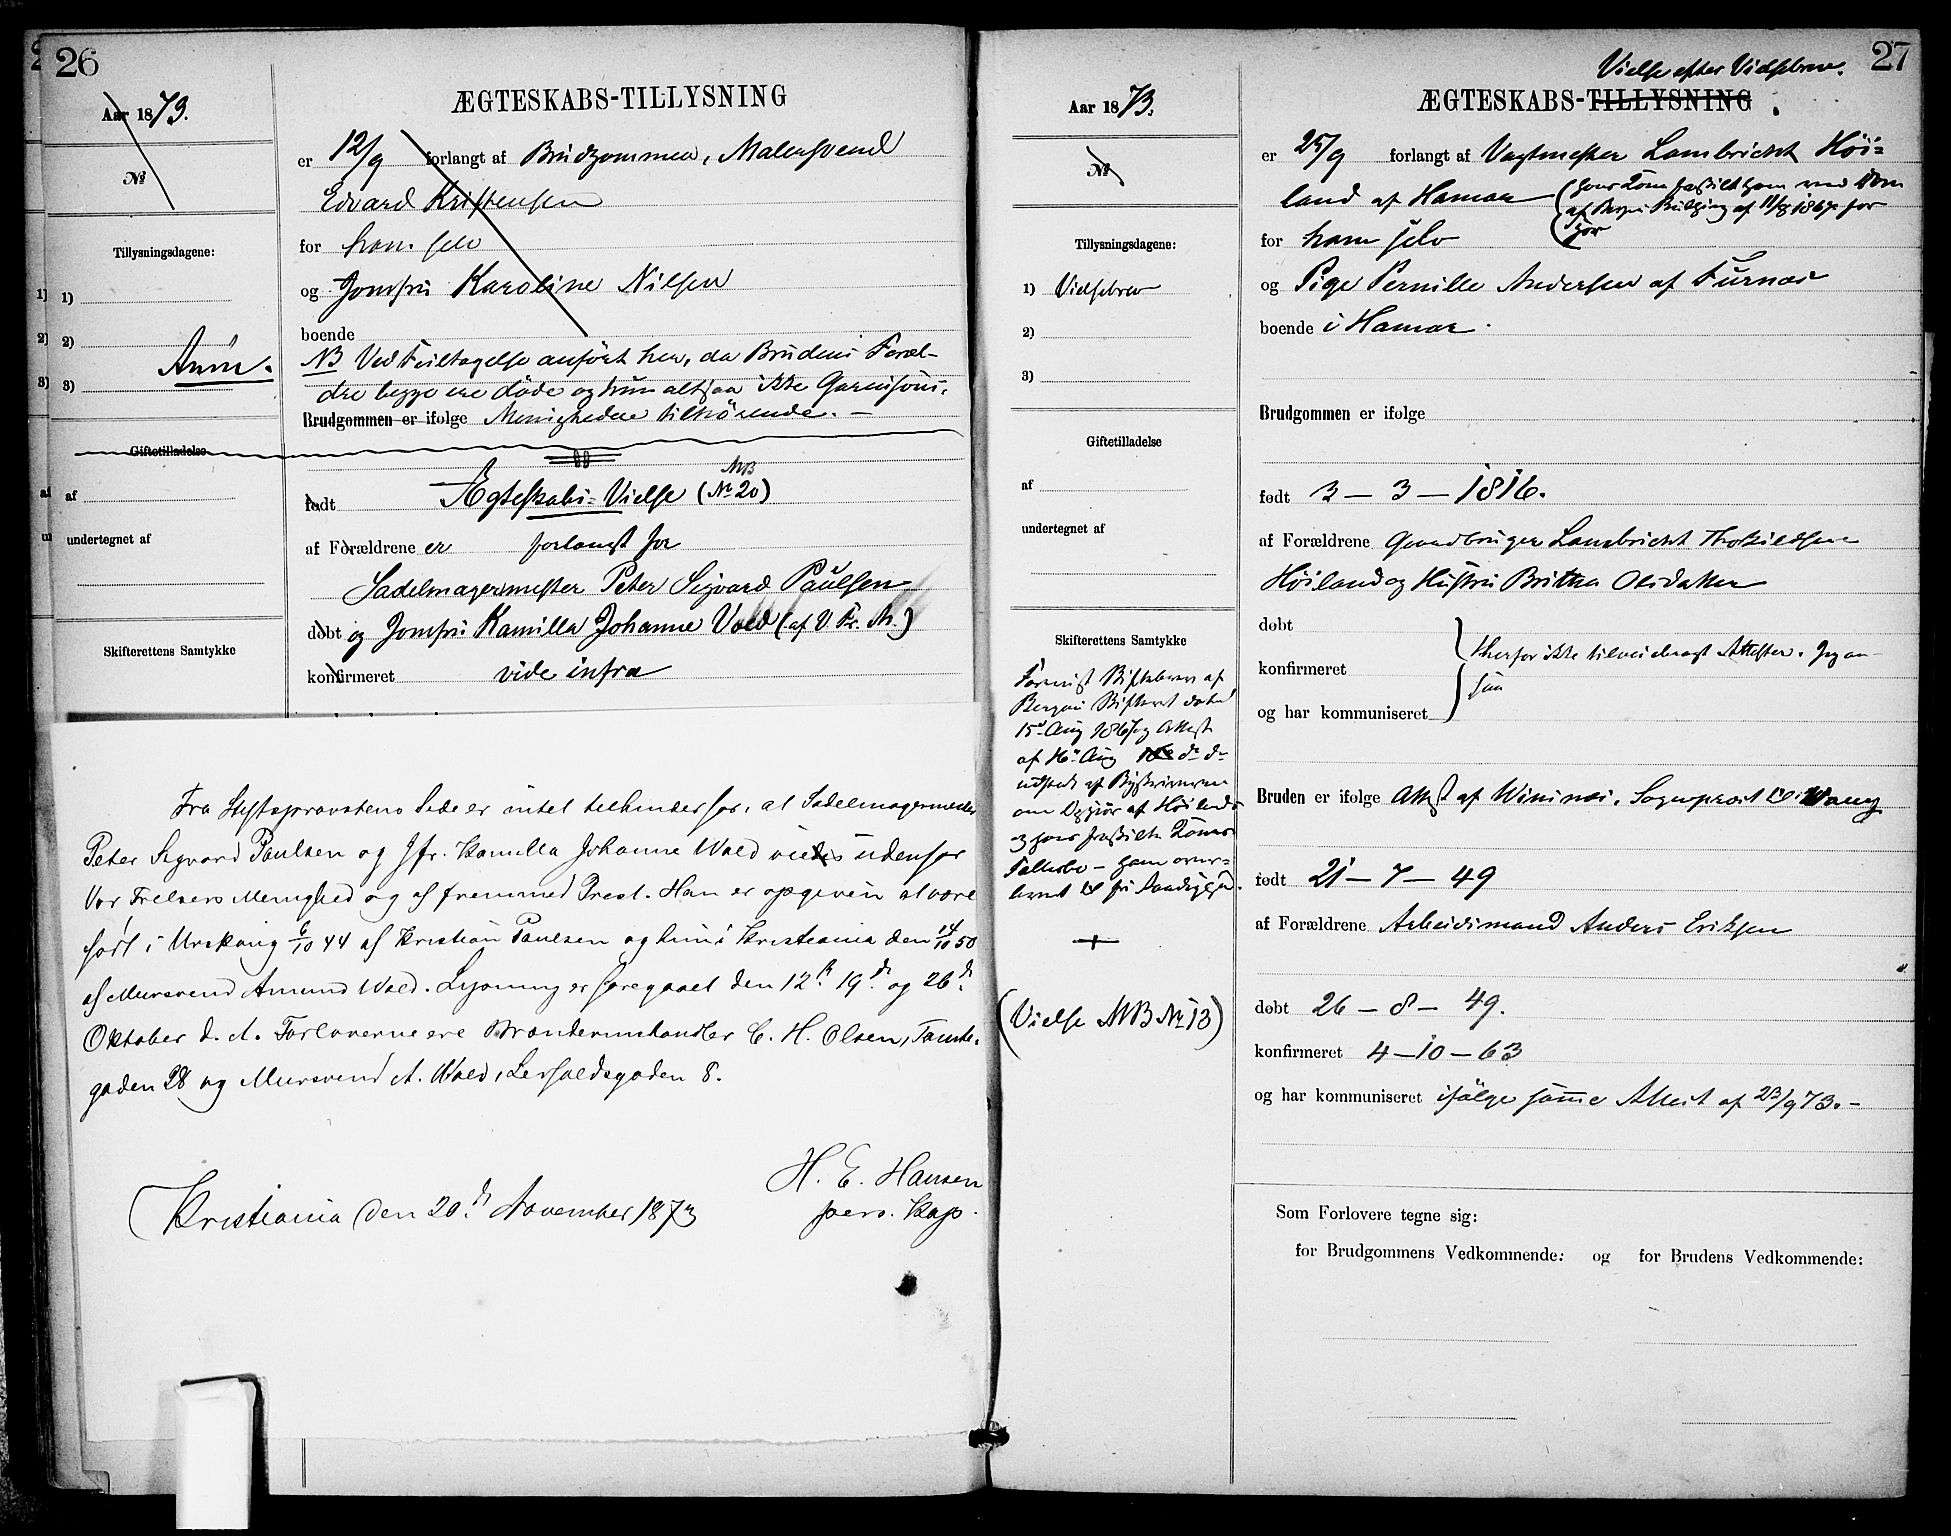 26
Aar 1873.
№
Tillysningsdagene:
1)
2)
3)
Anm.
Giftetilladelse
af
undertegnet af
Skifterettens Samtykke
ÆGTESKABS-TILLYSNING
er 12/9 forlangt af Brudgommen, Malersvend
Edvard Kristensen
for ham selv
og Jomfru Karoline Nilsen
boende
NB Ved Feiltagelse anført her, da Brudens Foræl-
dre begge ere døde og hun altsaa ikke Garnisons-
Brudgommen er ifølge Menigheden tilhørende. —
født Ægteskabs-Vielse (MB № 20)
af Forældrene er forlangt for
Sadelmagermester Peter Sigvard Paulsen
døbt og Jomfru Kamilla Johanne Vold (af V. Fr. M.)
konfirmeret vide infra
Fra Stiftsprovstens Side er intet tilhinder for, at Sadelmagermester
Peter Sigvard Paulsen og Jfr. Kamilla Johanne Wold vies udenfor
Vor Frelsers Menighed og af fremmed Prest. Han er opgiven at være
født i Urskoug 6/10 44 af Kristian Paulsen og hun i Kristiania den 14/10 50
af Mursvend Amund Wold. Lysning er foregaaet den 12te 19de og 26de
Oktober d. A. Forloverne ere Brændevinshandler C. H. Olsen, Tomte-
gaden 28 og Mursvend A. Wold, Lerfaldsgaden 8.
Kristiania den 20de November 1873
H. E. Hansen
pers. Kap.
27
Aar 1873.
№
Tillysningsdagene:
1) Vielsebrev
2)
3)
Giftetilladelse
af
undertegnet af
Skifterettens Samtykke
Forevist Skiftebrev af
Bergens Skifteret dateret
15de Aug 1867 og Attest
af 16de Aug do do
udstedt af Byskriveren
om Opgjør af Høilands
og hans fraskilte Kones
Fællesbo — ham over-
leveret til fri Raadighed.
(Vielse MB № 13)
Vielse efter Vielsebrev.
ÆGTESKABS-TILLYSNING
er 25/9 forlangt af Vagtmester Lambricht Høi-
land af Hamar (hans Kone fraskilt ham ved Dom
af Bergens 11/8 1867 for
hor
for ham selv
og Pige Pernille Andersen af Furnæs
boende i Hamar.
Brudgommen er ifølge
født 3 — 3 — 1816.
af Forældrene Gaardbruger Lambricht Thorkildsen
Høiland og Hustru Britha Olsdatter
døbt
konfirmeret
og har kommuniseret
} Herfor ikke tilveiebragt Attester.
Bruden er ifølge Attest af Winsnes, Sogneprest til Vang
født 21 — 7 — 49
af Forældrene Arbeidsmand Anders Eriksen
døbt 26 — 8 — 49.
konfirmeret 4 — 10 — 63
og har kommuniseret ifølge samme Attest af 23/9 73. —
Som Forlovere tegne sig:
for Brudgommens Vedkommende: og for Brudens Vedkommende: